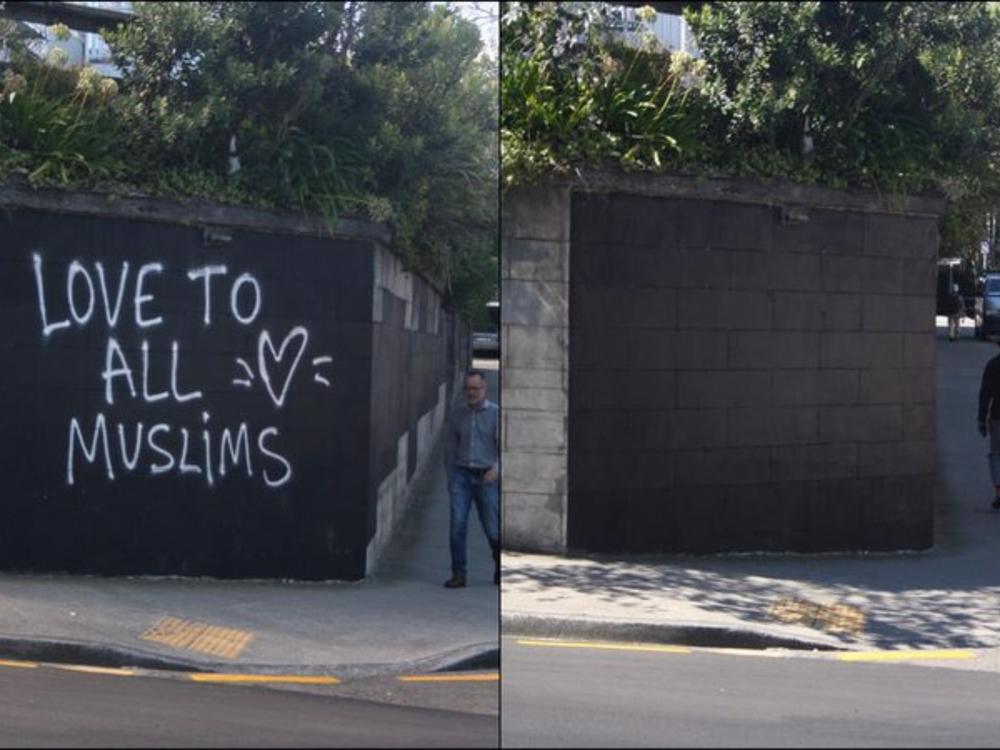 LOVE TO
ALL
MUSLiMS